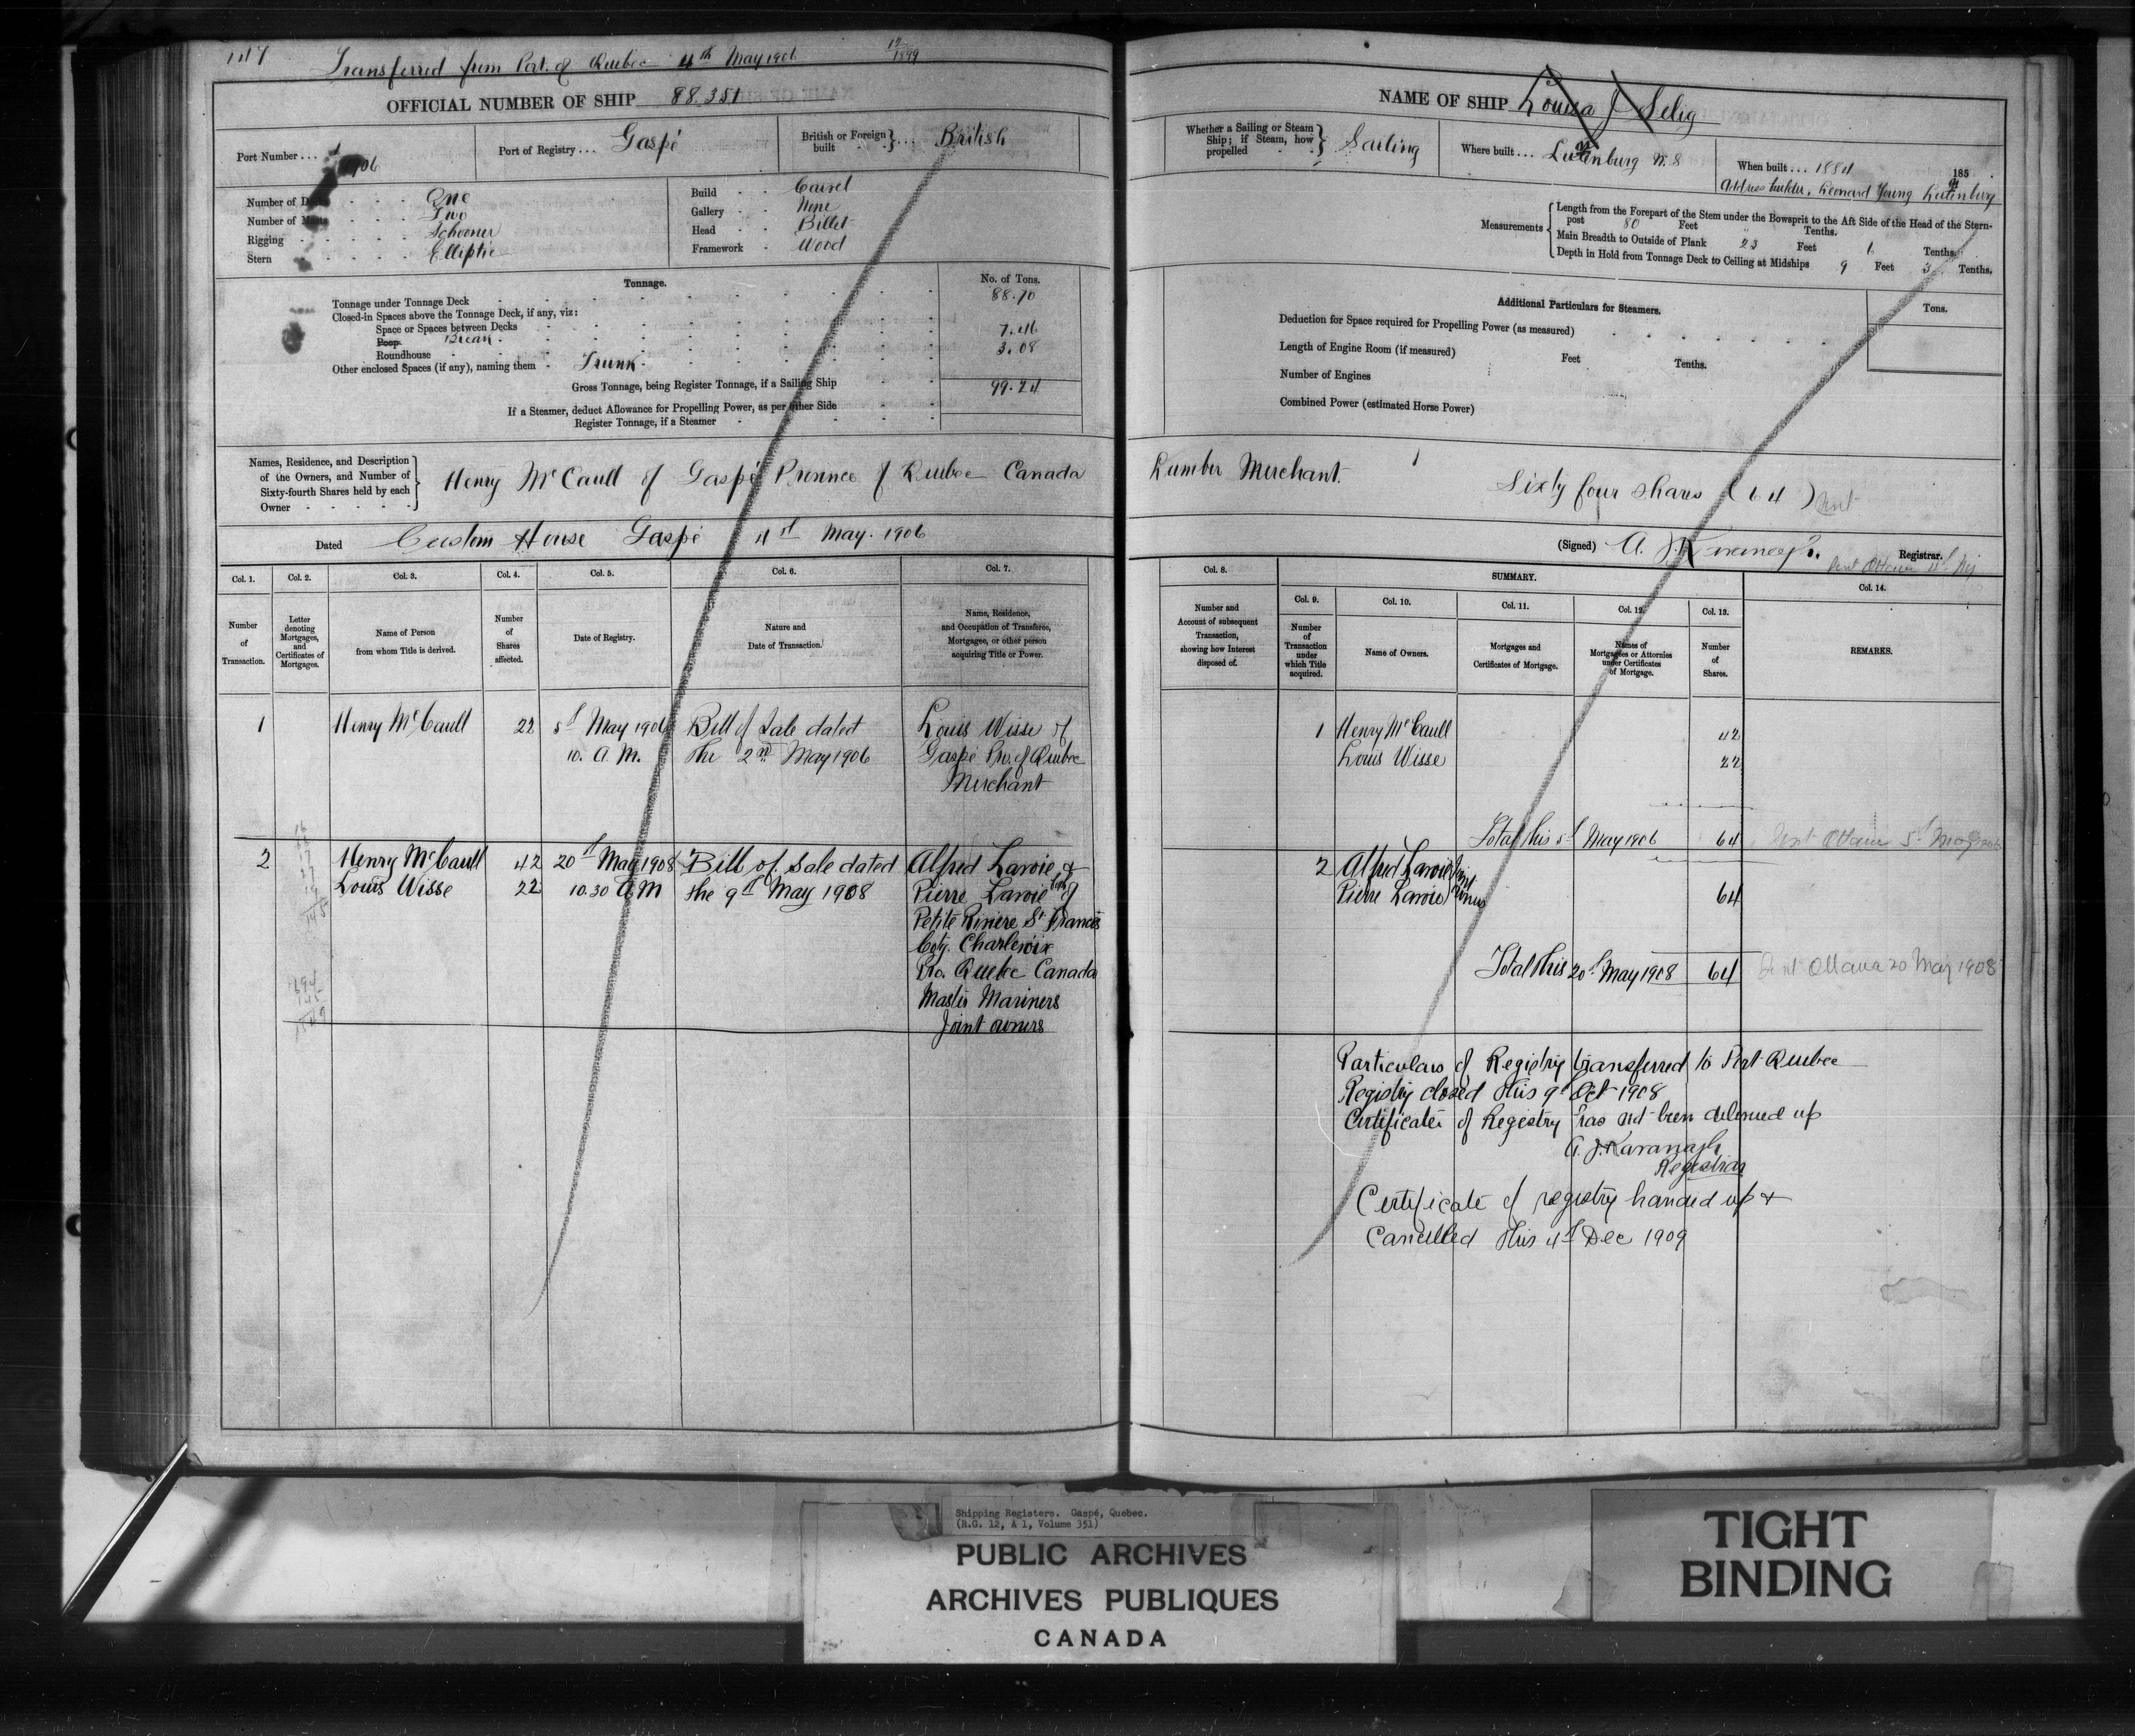 Transferred from Port of Quebec 4th May 1906
12/1899
OFFICIAL NUMBER OF SHIP 88.351
Port Number ... 1/1906
Port of Registry ... Gaspé
British or Foreign built } ... British
Number of Decks One
Number of Masts Two
Rigging Schooner
Stern Elliptic
Build Carvel
Gallery None
Head Billet
Framework Wood
Tonnage.
No. of Tons.
Tonnage under Tonnage Deck 88.70
Closed-in Spaces above the Tonnage Deck, if any, viz:
Space or Spaces between Decks
Poop. Break 7.46
Roundhouse 3.08
Other enclosed Spaces (if any), naming them - Trunk
Gross Tonnage, being Register Tonnage, if a Sailing Ship 99.24
If a Steamer, deduct Allowance for Propelling Power, as per other Side
Register Tonnage, if a Steamer
Names, Residence, and Description
of the Owners, and Number of
Sixty-fourth Shares held by each
Owner
Henry McCaull of Gaspé Province of Quebec Canada
Dated Custom House Gaspé 4th May. 1906
Col. 1.
Number
of
Transaction.
Col. 2.
Letter
denoting
Mortgages,
and
Certificates of
Mortgages.
Col. 3.
Name of Person
from whom Title is derived.
Col. 4.
Number
of
Shares
affected.
Col. 5.
Date of Registry.
Col. 6.
Nature and
Date of Transaction.
Col. 7.
Name, Residence,
and Occupation of Transferee,
Mortgagee, or other person
acquiring Title or Power.
1 Henry McCaull 22 5th May 1906 Bill of Sale dated Louis Wisse of
10. A.M. the 2nd May 1906 Gaspé Pro. of Quebec
Merchant
2 Henry McCaull 42 20th May 1908 Bill of Sale dated Alfred Lavoie &
Louis Wisse 22 10.30 A M the 9th May 1908 Pierre Lavoie of
Petite Riviere St Francis
Coty. Charlevoix
Pro. Quebec Canada
Master Mariners
Joint owners
NAME OF SHIP Louisa J Selig
Whether a Sailing or Steam
Ship; if Steam, how
propelled } Sailing
Where built ... Lunenburg N.S
When built ... 1884 185
Address builder, Leonard Young Lunenburg
Measurements
Length from the Forepart of the Stem under the Bowsprit to the Aft Side of the Head of the Stern-
post 80 Feet Tenths.
Main Breadth to Outside of Plank 23 Feet 6 Tenths.
Depth in Hold from Tonnage Deck to Ceiling at Midships 9 Feet 3 Tenths.
Additional Particulars for Steamers.
Tons.
Deduction for Space required for Propelling Power (as measured)
Length of Engine Room (if measured) Feet Tenths.
Number of Engines
Combined Power (estimated Horse Power)
Lumber Merchant. Sixty four shares (64)
(Signed) A. J. Kavanagh. Registrar.
Col. 8.
Number and
Account of subsequent
Transaction,
showing how Interest
disposed of.
SUMMARY.
Col. 9.
Number
of
Transaction
under
which Title
acquired.
Col. 10.
Name of Owners.
Col. 11.
Mortgages and
Certificates of Mortgage.
Col. 12.
Names of
Mortgagees or Attornies
under Certificates
of Mortgage.
Col. 13.
Number
of
Shares.
Col. 14.
REMARKS.
1 Henry McCaull 42
Louis Wisse 22
Total this 5th May 1906 64 Sent Ottawa 5th May 1906
2 Alfred Lavoie } Joint
Pierre Lavoie } owners 64
Total this 20th May 1908 64 Sent Ottawa 20 May 1908
Particulars of Registry transferred to Port Quebec
Registry closed this 9th Oct 1908
Certificate of Registry has not been delivered up
A. J. Kavanagh
Registrar
Certificate of registry handed up &
Cancelled this 4th Dec 1909
Shipping Registers. Gaspé, Quebec.
(R.G. 12, A 1, Volume 351)
PUBLIC ARCHIVES
ARCHIVES PUBLIQUES
CANADA
TIGHT
BINDING